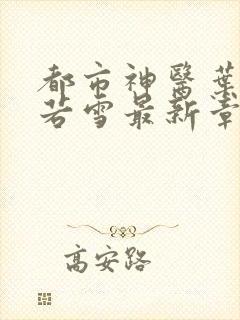 都市神醫葉
若雪最新章
高安路